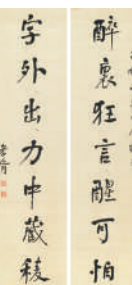 醉裏狂言醒可怕
字外出力中藏稜